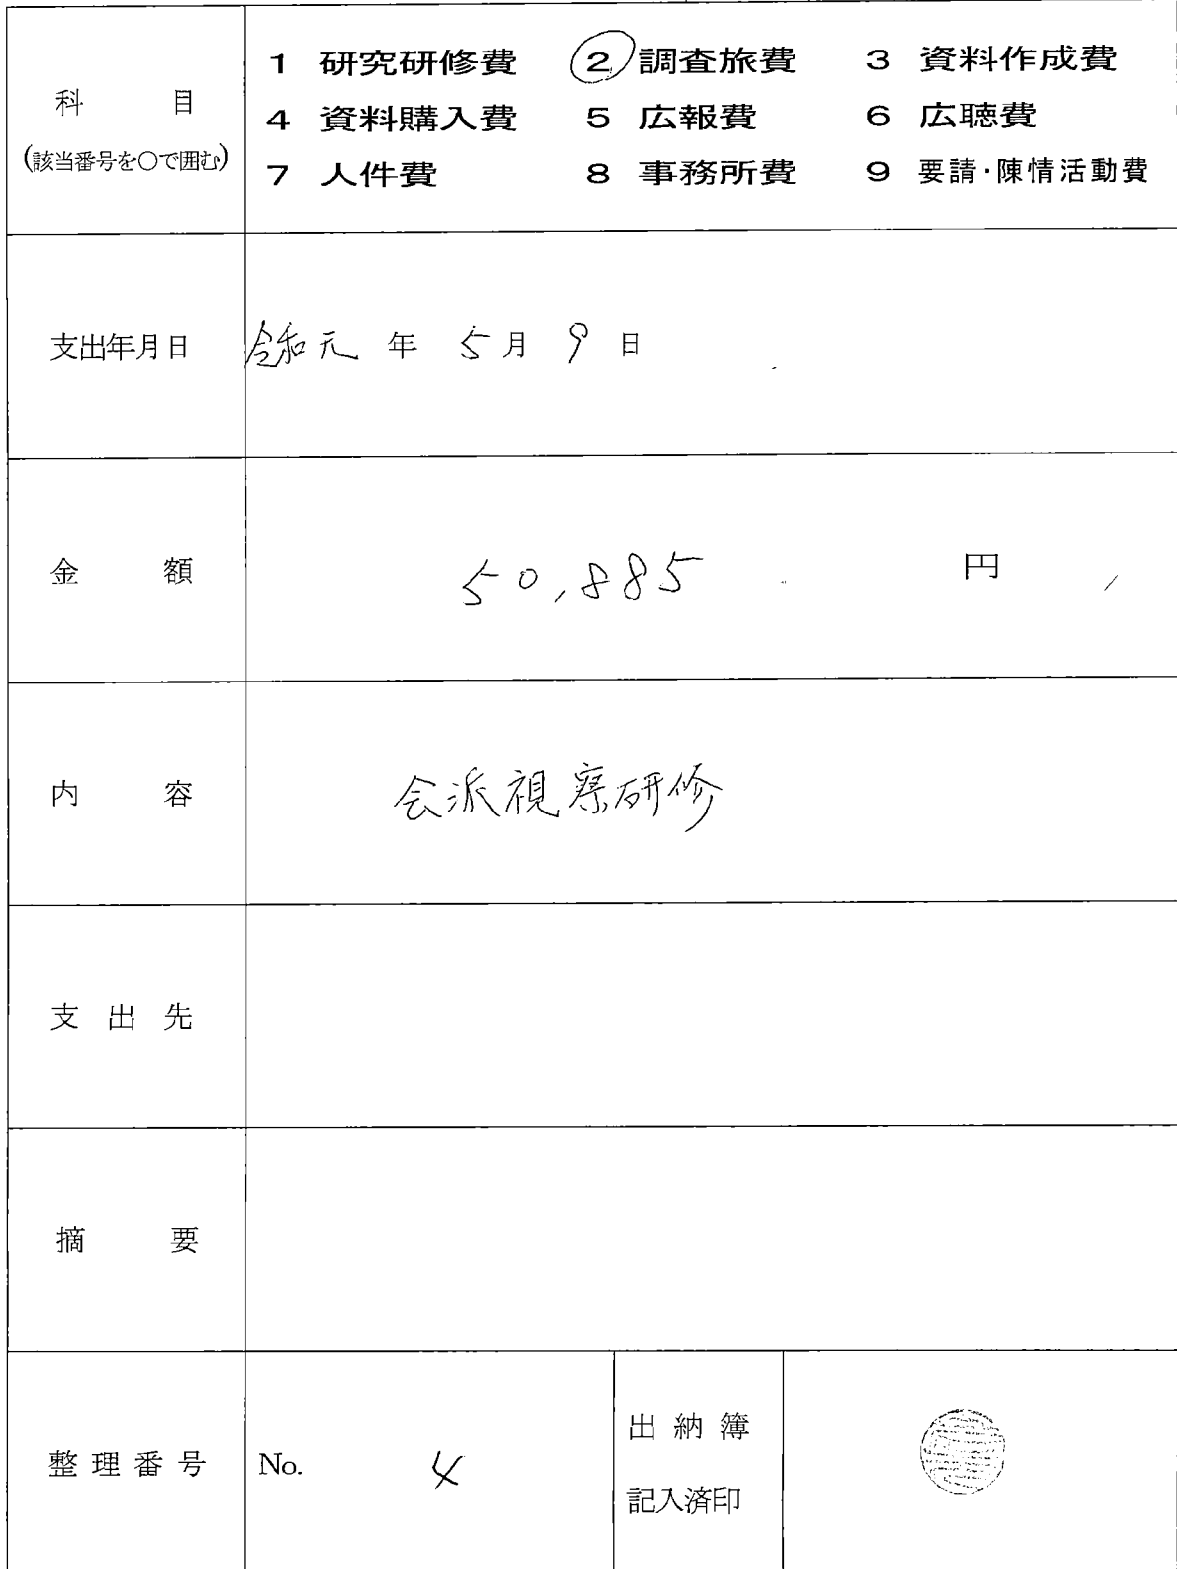 科目
(該当番号を○で囲む)
1 研究研修費 2 調査旅費 3 資料作成費
4 資料購入費 5 広報費 6 広聴費
7 人件費 8 事務所費 9 要請・陳情活動費
支出年月日 令和元年5月9日
金額 50,885 円
内容 会派視察研修
支出先
摘要
整理番号 No. 4
出納簿
記入済印